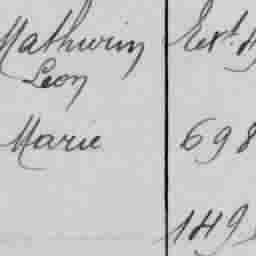 Mathurin
Leon
Marie 698
149